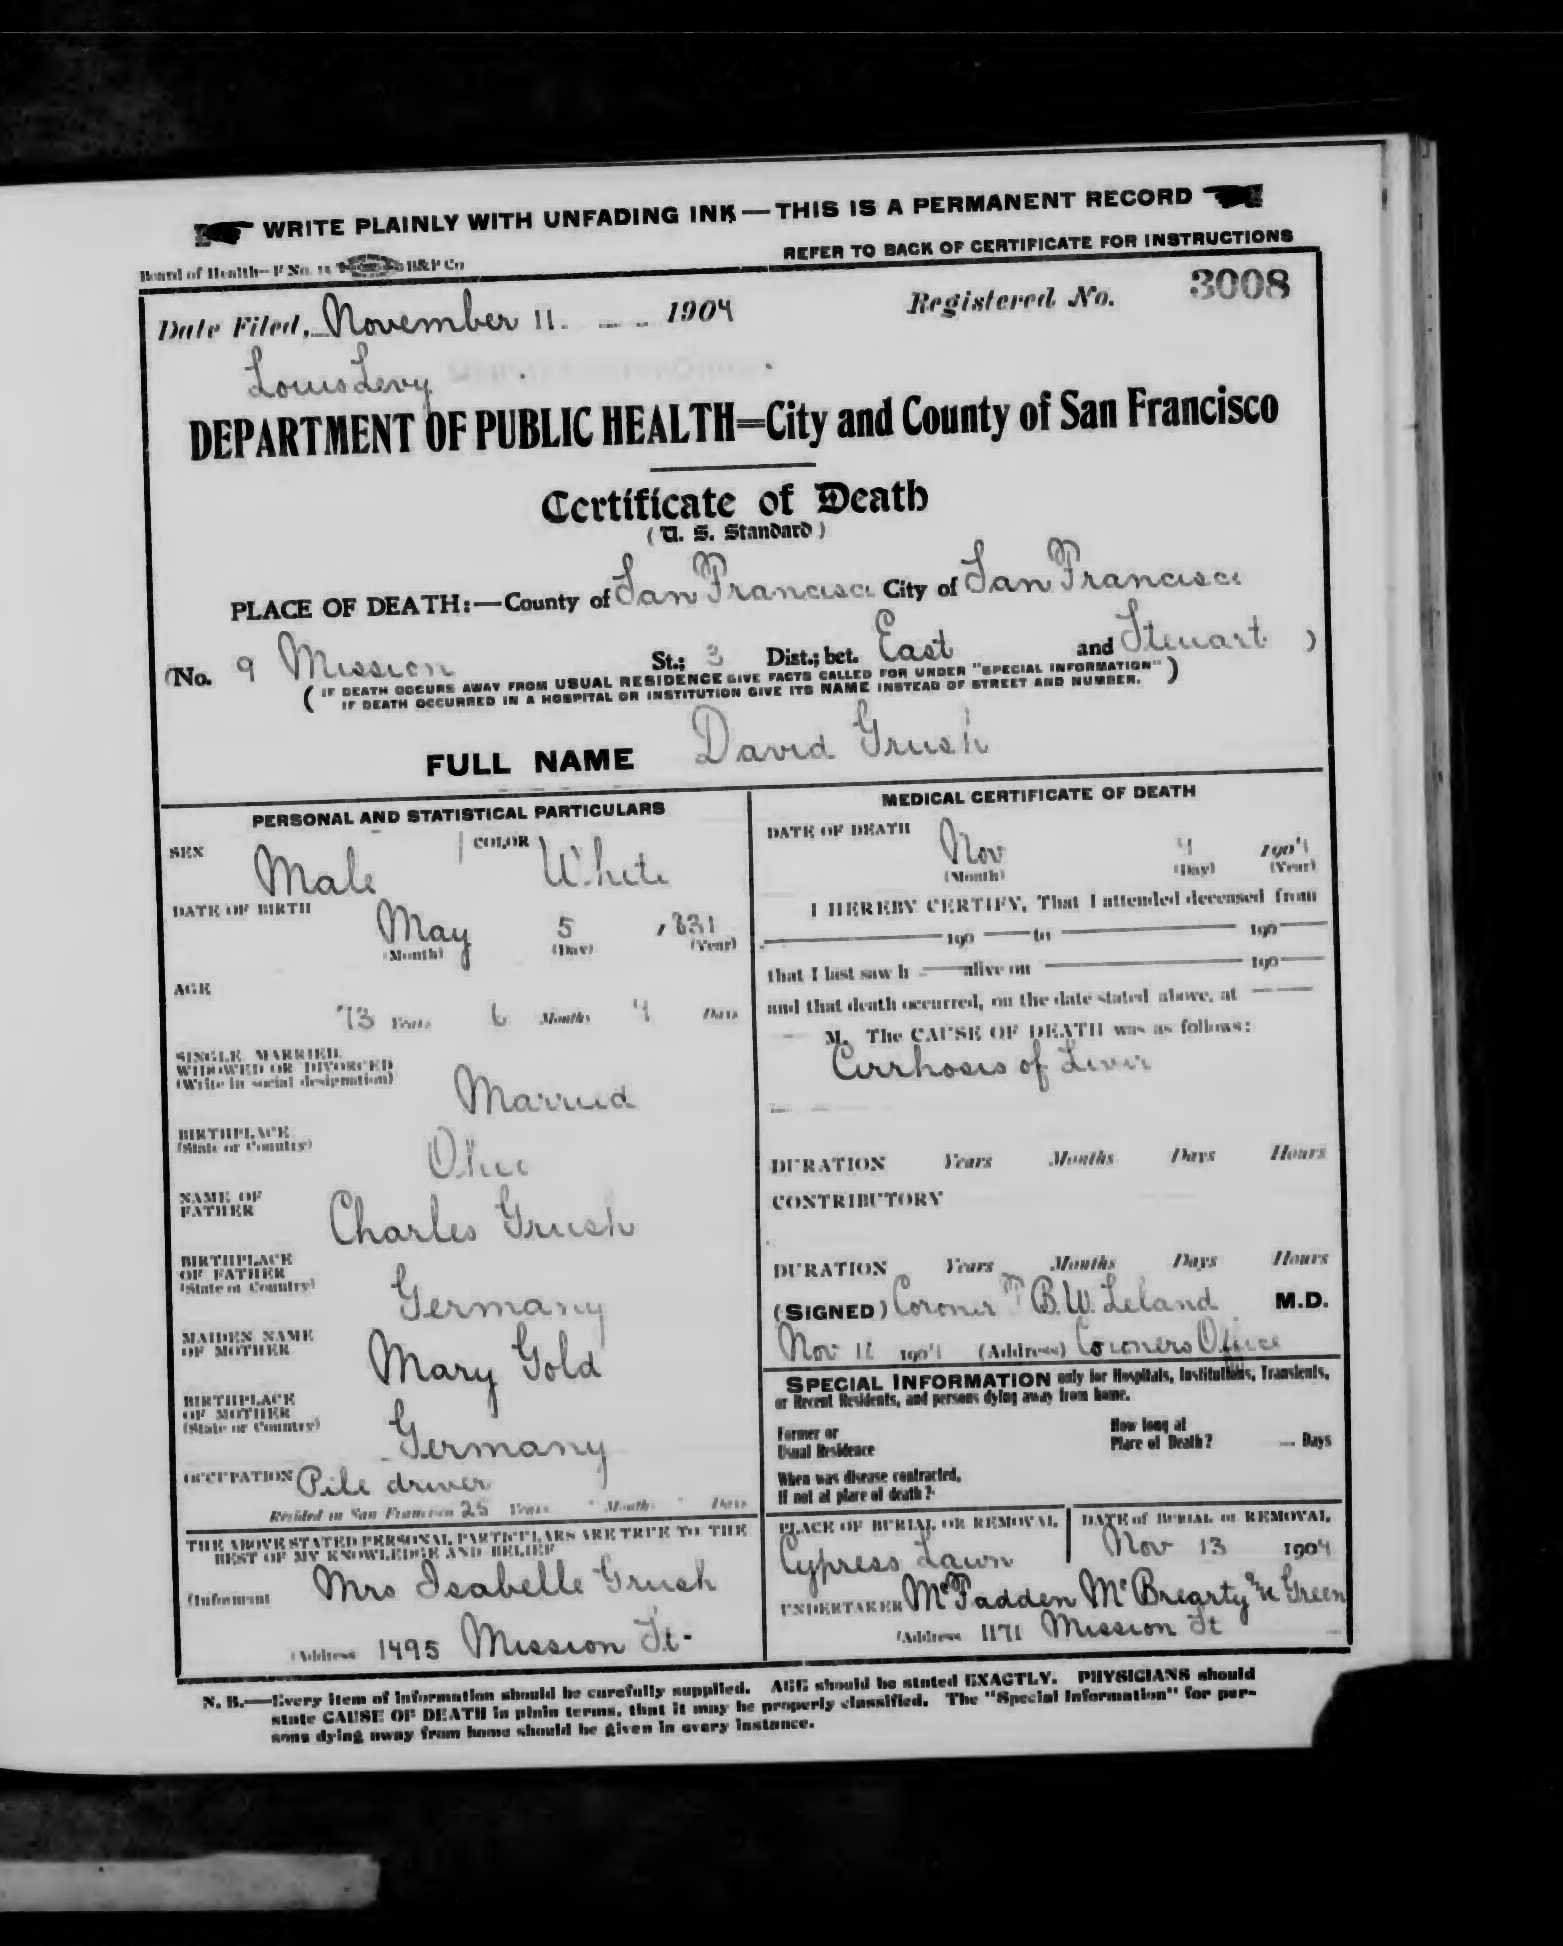 WRITE PLAINLY WITH UNFADING INK—THIS IS A PERMANENT RECORD
REFER TO BACK OF CERTIFICATE FOR INSTRUCTIONS
Board of Health—F No. B&P Co
Date Filed, November 11. 1904 Registered No. 3008
Louis Levy
DEPARTMENT OF PUBLIC HEALTH=City and County of San Francisco
Certificate of Death
(U. S. Standard)
PLACE OF DEATH:—County of San Francisco City of San Francisco
(No. 9 Mission St.; 3 Dist.; bet. East and Steuart )
( IF DEATH OCCURS AWAY FROM USUAL RESIDENCE GIVE FACTS CALLED FOR UNDER "SPECIAL INFORMATION" )
IF DEATH OCCURRED IN A HOSPITAL OR INSTITUTION GIVE ITS NAME INSTEAD OF STREET AND NUMBER.
FULL NAME David Grush
PERSONAL AND STATISTICAL PARTICULARS
SEX Male COLOR White
DATE OF BIRTH May 5 , 831
(Month) (Day) (Year)
AGE
73 Years 6 Months 4 Days
SINGLE, MARRIED,
WIDOWED OR DIVORCED
(Write in social designation) Married
BIRTHPLACE
(State or Country) Ohio
NAME OF
FATHER Charles Grush
BIRTHPLACE
OF FATHER
(State or Country) Germany
MAIDEN NAME
OF MOTHER Mary Gold
BIRTHPLACE
OF MOTHER
(State or Country) Germany
OCCUPATION Pile driver
Resided in San Francisco 25 Years Months Days
THE ABOVE STATED PERSONAL PARTICULARS ARE TRUE TO THE
BEST OF MY KNOWLEDGE AND BELIEF
(Informant Mrs Isabelle Grush
(Address 1495 Mission St-
MEDICAL CERTIFICATE OF DEATH
DATE OF DEATH Nov 9 1904
(Month) (Day) (Year)
I HEREBY CERTIFY, That I attended deceased from
190 to 190
that I last saw h alive on 190
and that death occurred, on the date stated above, at
M. The CAUSE OF DEATH was as follows:
Cirrhosis of Liver
DURATION Years Months Days Hours
CONTRIBUTORY
DURATION Years Months Days Hours
(SIGNED) Coroner T B. W. Leland M.D.
Nov 11 1904 (Address) Coroners Office
SPECIAL INFORMATION only for Hospitals, Institutions, Transients,
or Recent Residents, and persons dying away from home.
Former or
Usual Residence
How long at
Place of Death? Days
When was disease contracted,
If not at place of death?
PLACE OF BURIAL OR REMOVAL
Cypress Lawn
DATE of BURIAL or REMOVAL
Nov 13 1904
UNDERTAKER McFadden McBrearty & Green
(Address 1171 Mission St
N. B.—Every item of information should be carefully supplied. AGE should be stated EXACTLY. PHYSICIANS should
state CAUSE OF DEATH in plain terms, that it may be properly classified. The "Special Information" for per-
sons dying away from home should be given in every instance.